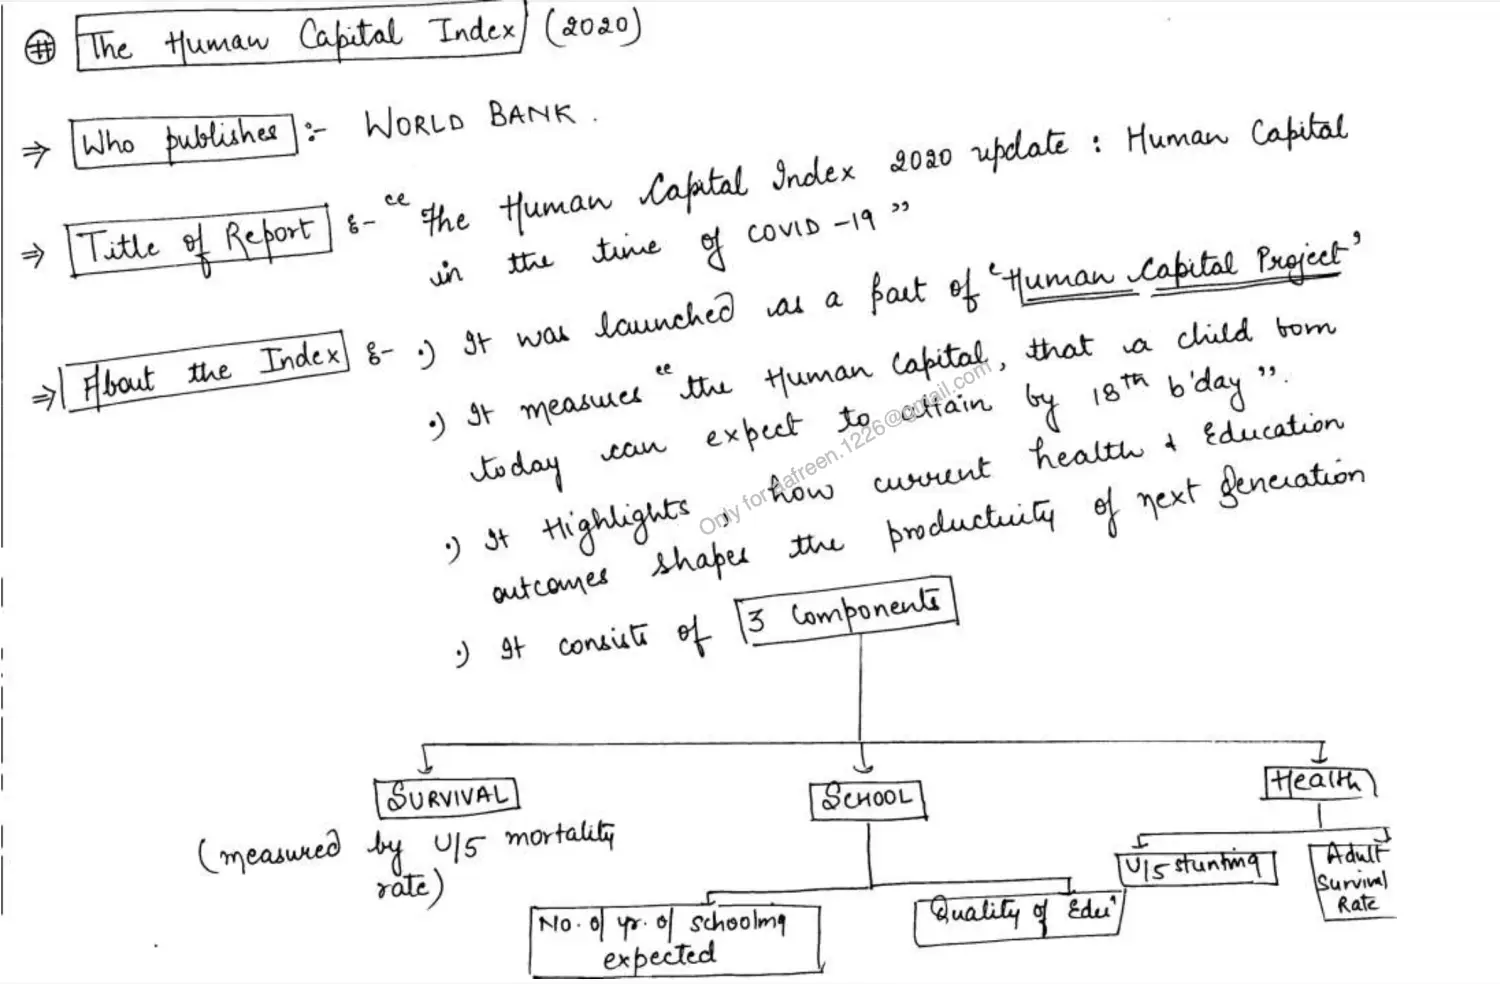 # The Human Capital Index (2020)
⇒ Who publishes :- WORLD BANK.
⇒ Title of Report :- "The Human Capital Index 2020 update : Human Capital
in the time of COVID-19"
⇒ About the Index :- •) It was launched as a part of 'Human Capital Project'
•) It measures "the Human Capital, that a child born
today can expect to attain by 18th b'day".
•) It Highlights, how current health & Education
outcomes shapes the productivity of next generation
•) It consists of 3 Components
SURVIVAL
(measured by U/5 mortality
rate)
SCHOOL
No. of yr. of schooling
expected
Quality of Edu'
Health
U/5 stunting
Adult
Survival
Rate
Only for aafreen.1226@gmail.com